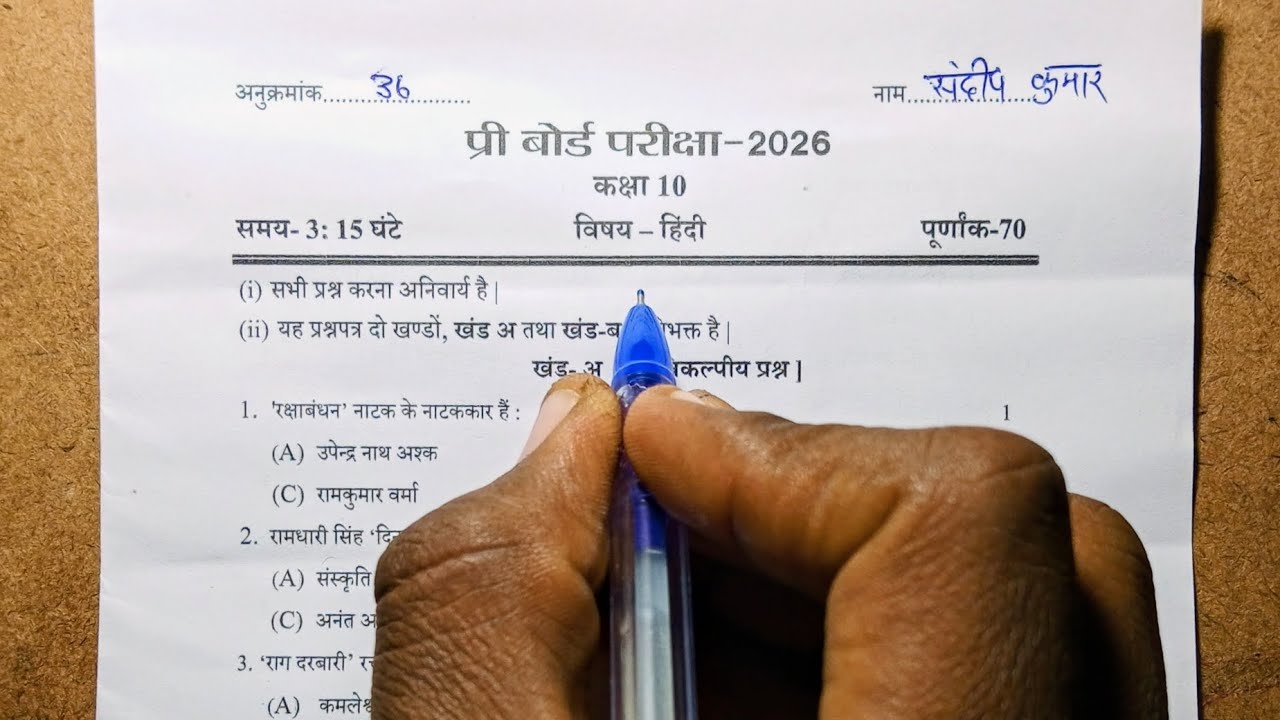 अनुक्रमांक........36........ नाम....संदीप कुमार
प्री बोर्ड परीक्षा-2026
कक्षा 10
समय- 3: 15 घंटे विषय – हिंदी पूर्णांक-70
(i) सभी प्रश्न करना अनिवार्य है |
(ii) यह प्रश्नपत्र दो खण्डों, खंड अ तथा खंड-ब है |
खंड- अ प्रश्न ]
1. 'रक्षाबंधन’ नाटक के नाटककार हैं : 1
(A) उपेन्द्र नाथ अश्क
(C) रामकुमार वर्मा
2. रामधारी सिंह
(A) संस्कृति
(C) अनंत
3. ‘राग दरबारी’
(A)